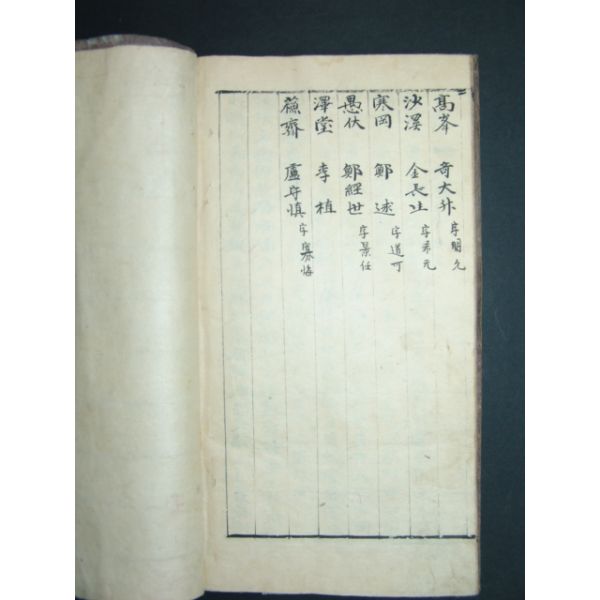 高峯 奇大升 字明彦
沙溪 金長生 字希元
寒岡 鄭逑 字道可
愚伏 鄭經世 字景任
澤堂 李植
蘓齋 盧守愼 字寡悔